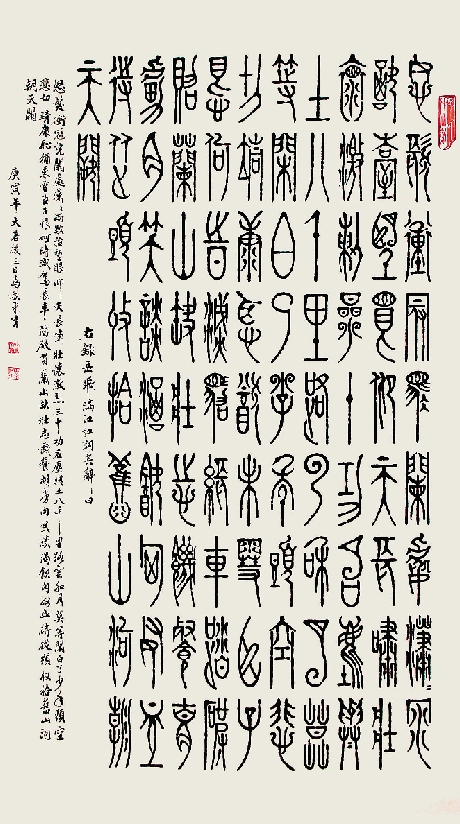 怒髮衝冠憑闌處瀟〻雨
歇抬望眼仰天長嘯壯
懷激烈三十功名塵與
土八千里路雲和月莫
等閑白了少年頭空悲
切靖康恥猶未雪臣子
恨何時滅駕長車踏破
賀蘭山缺壯志飢餐胡
虜肉笑談渴飲匈奴血
待從頭收拾舊山河朝
天闕
右錄岳飛滿江紅詞其釋曰
怒髮衝冠憑闌處瀟〻雨歇抬望眼仰天長嘯壯懷激烈三十功名塵與土八千里路雲和月莫等閑白了少年頭空
悲切靖康恥猶未雪臣子恨何時滅駕長車踏破賀蘭山缺壯志飢餐胡虜肉笑談渴飲匈奴血待從頭收拾舊山河
朝天闕
庚寅年大暑後三日書